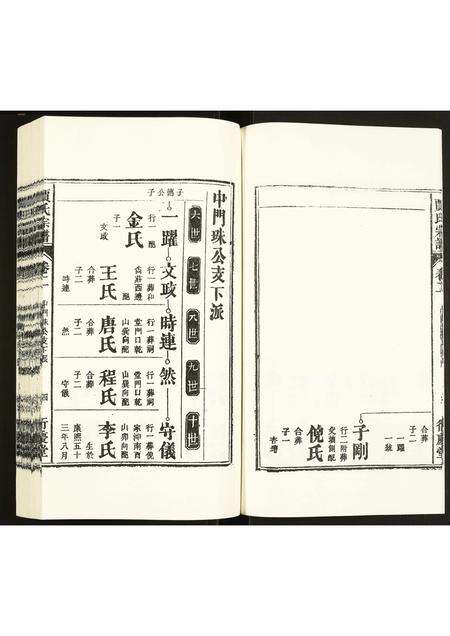 合葬
子二
一躍
一銑
子剛
行二附葬
父墳側配
倪氏
合葬
子一
卷二
中門珠公支下派
六世
七世
八世
九世
十世
子德公子
一躍
行一 配
金氏
子一
文政
文政
行一葬和
尚莊西邊
配
王氏
合葬
子二
時連
時連
行一葬祠
堂門口乾
山巽向配
唐氏
合葬
子二
然
然
行一葬祠
堂門口乾
山巽向配
程氏
合葬
子二
守儀
守儀
行一葬倪
家沖南酉
山卯向配
李氏
生於
康熙五十
三年八月
氏宗譜
卷二
中門珠公支下派
四